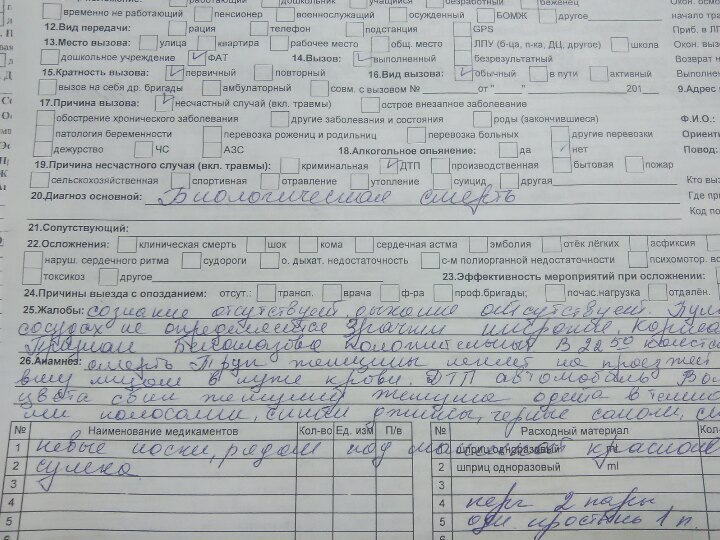 временно не работающий пенсионер военнослужащий осужденный БОМЖ другое
12.Вид передачи: рация телефон подстанция GPS
13.Место вызова: улица квартира рабочее место общ. место ЛПУ (б-ца, п-ка, ДЦ, другое) школа
дошкольное учреждение ФАТ 14.Вызов: выполненный безрезультатный
15.Кратность вызова: первичный повторный 16.Вид вызова: обычный в пути активный
вызов на себя др. бригады амбулаторный совм. с вызовом № от " " 201
17.Причина вызова: несчастный случай (вкл. травмы) острое внезапное заболевание
обострение хронического заболевания другие заболевания и состояния роды (закончившиеся)
патология беременности перевозка рожениц и родильниц перевозка больных другие перевозки
дежурство ЧС АЗС 18.Алкогольное опьянение: да нет
19.Причина несчастного случая (вкл. травмы): криминальная ДТП производственная бытовая пожар
сельскохозяйственная спортивная отравление утопление суицид другая
20.Диагноз основной: Биологическая смерть
21.Сопутствующий:
22.Осложнения: клиническая смерть шок кома сердечная астма эмболия отёк лёгких асфиксия
наруш. сердечного ритма судороги о. дыхат. недостаточность с-м полиорганной недостаточности психомотор.
токсикоз другое 23.Эффективность мероприятий при осложнении:
24.Причины выезда с опозданием: отсут.: трансп. врача ф-ра проф.бригады; почас.нагрузка отдалён.
25.Жалобы: сознание отсутствует, дыхание отсутствует.
сосудах не определяется Зрачки широкие.
Признак Белоглазова положительный В 22 50
26.Анамнез: смерть Труп женщины лежит на проезжей
вниз лицом в луже крови. ДТП автомобиль
цвета сбил женщину женщина одета в
полосами, синие джинсы, черные сапоги,
№ Наименование медикаментов Кол-во Ед. изм П/в № Расходный материал
1 носки, рядом под 1 шприц одноразовый ml
2 сумка 2 шприц одноразовый ml
3 3
4 4 перч 2 пары
5 5 одн простынь 1 п.